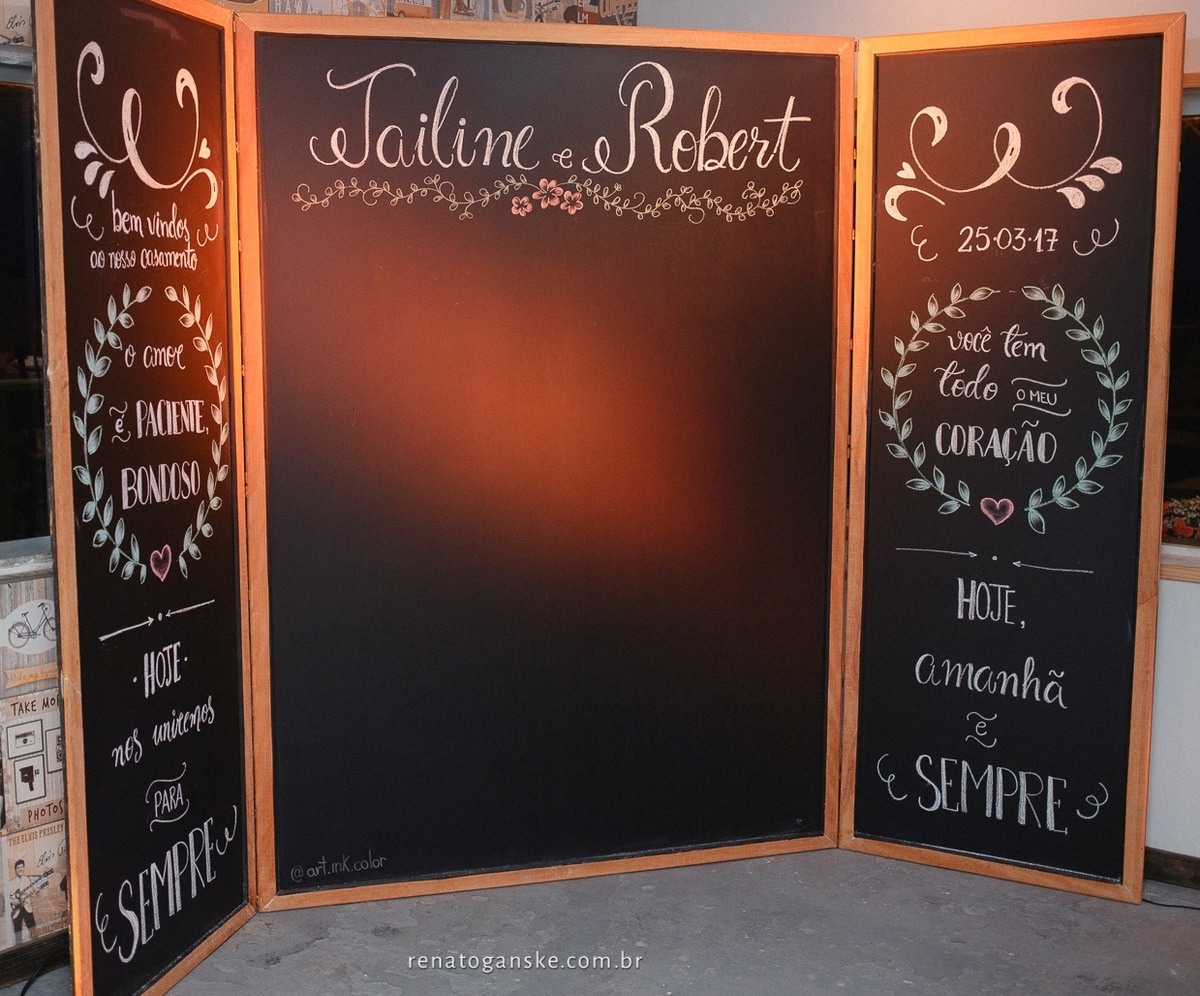 bem vindos
ao nosso casamento
o amor
é PACIENTE,
BONDOSO
·HOJE·
nos uniremos
PARA
SEMPRE
Tailine e Robert
@art.ink.color
25·03·17
você tem
todo O MEU
CORAÇÃO
HOJE,
amanhã
e
SEMPRE
TAKE MO
PHOTOS
THE ELVIS PRESLEY
Elvis
renatoganske.com.br